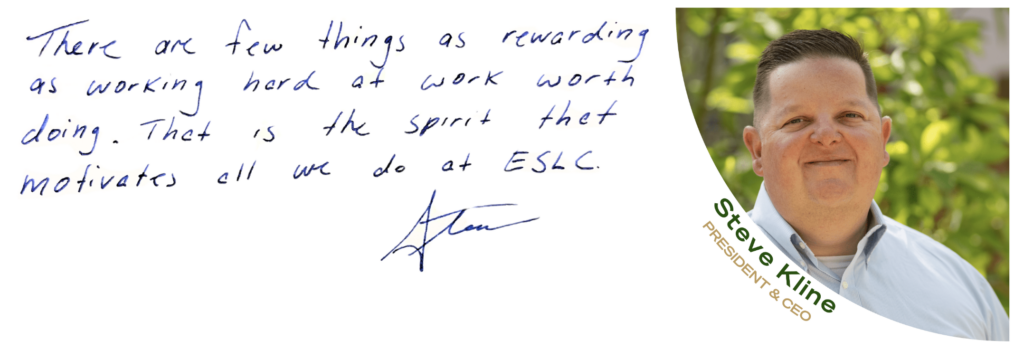 There are few things as rewarding
as working hard at work worth
doing. That is the spirit that
motivates all we do at ESLC.
Steve
Steve Kline
PRESIDENT & CEO